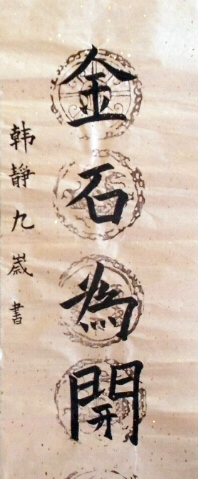 金石為開
韩靜九歲書